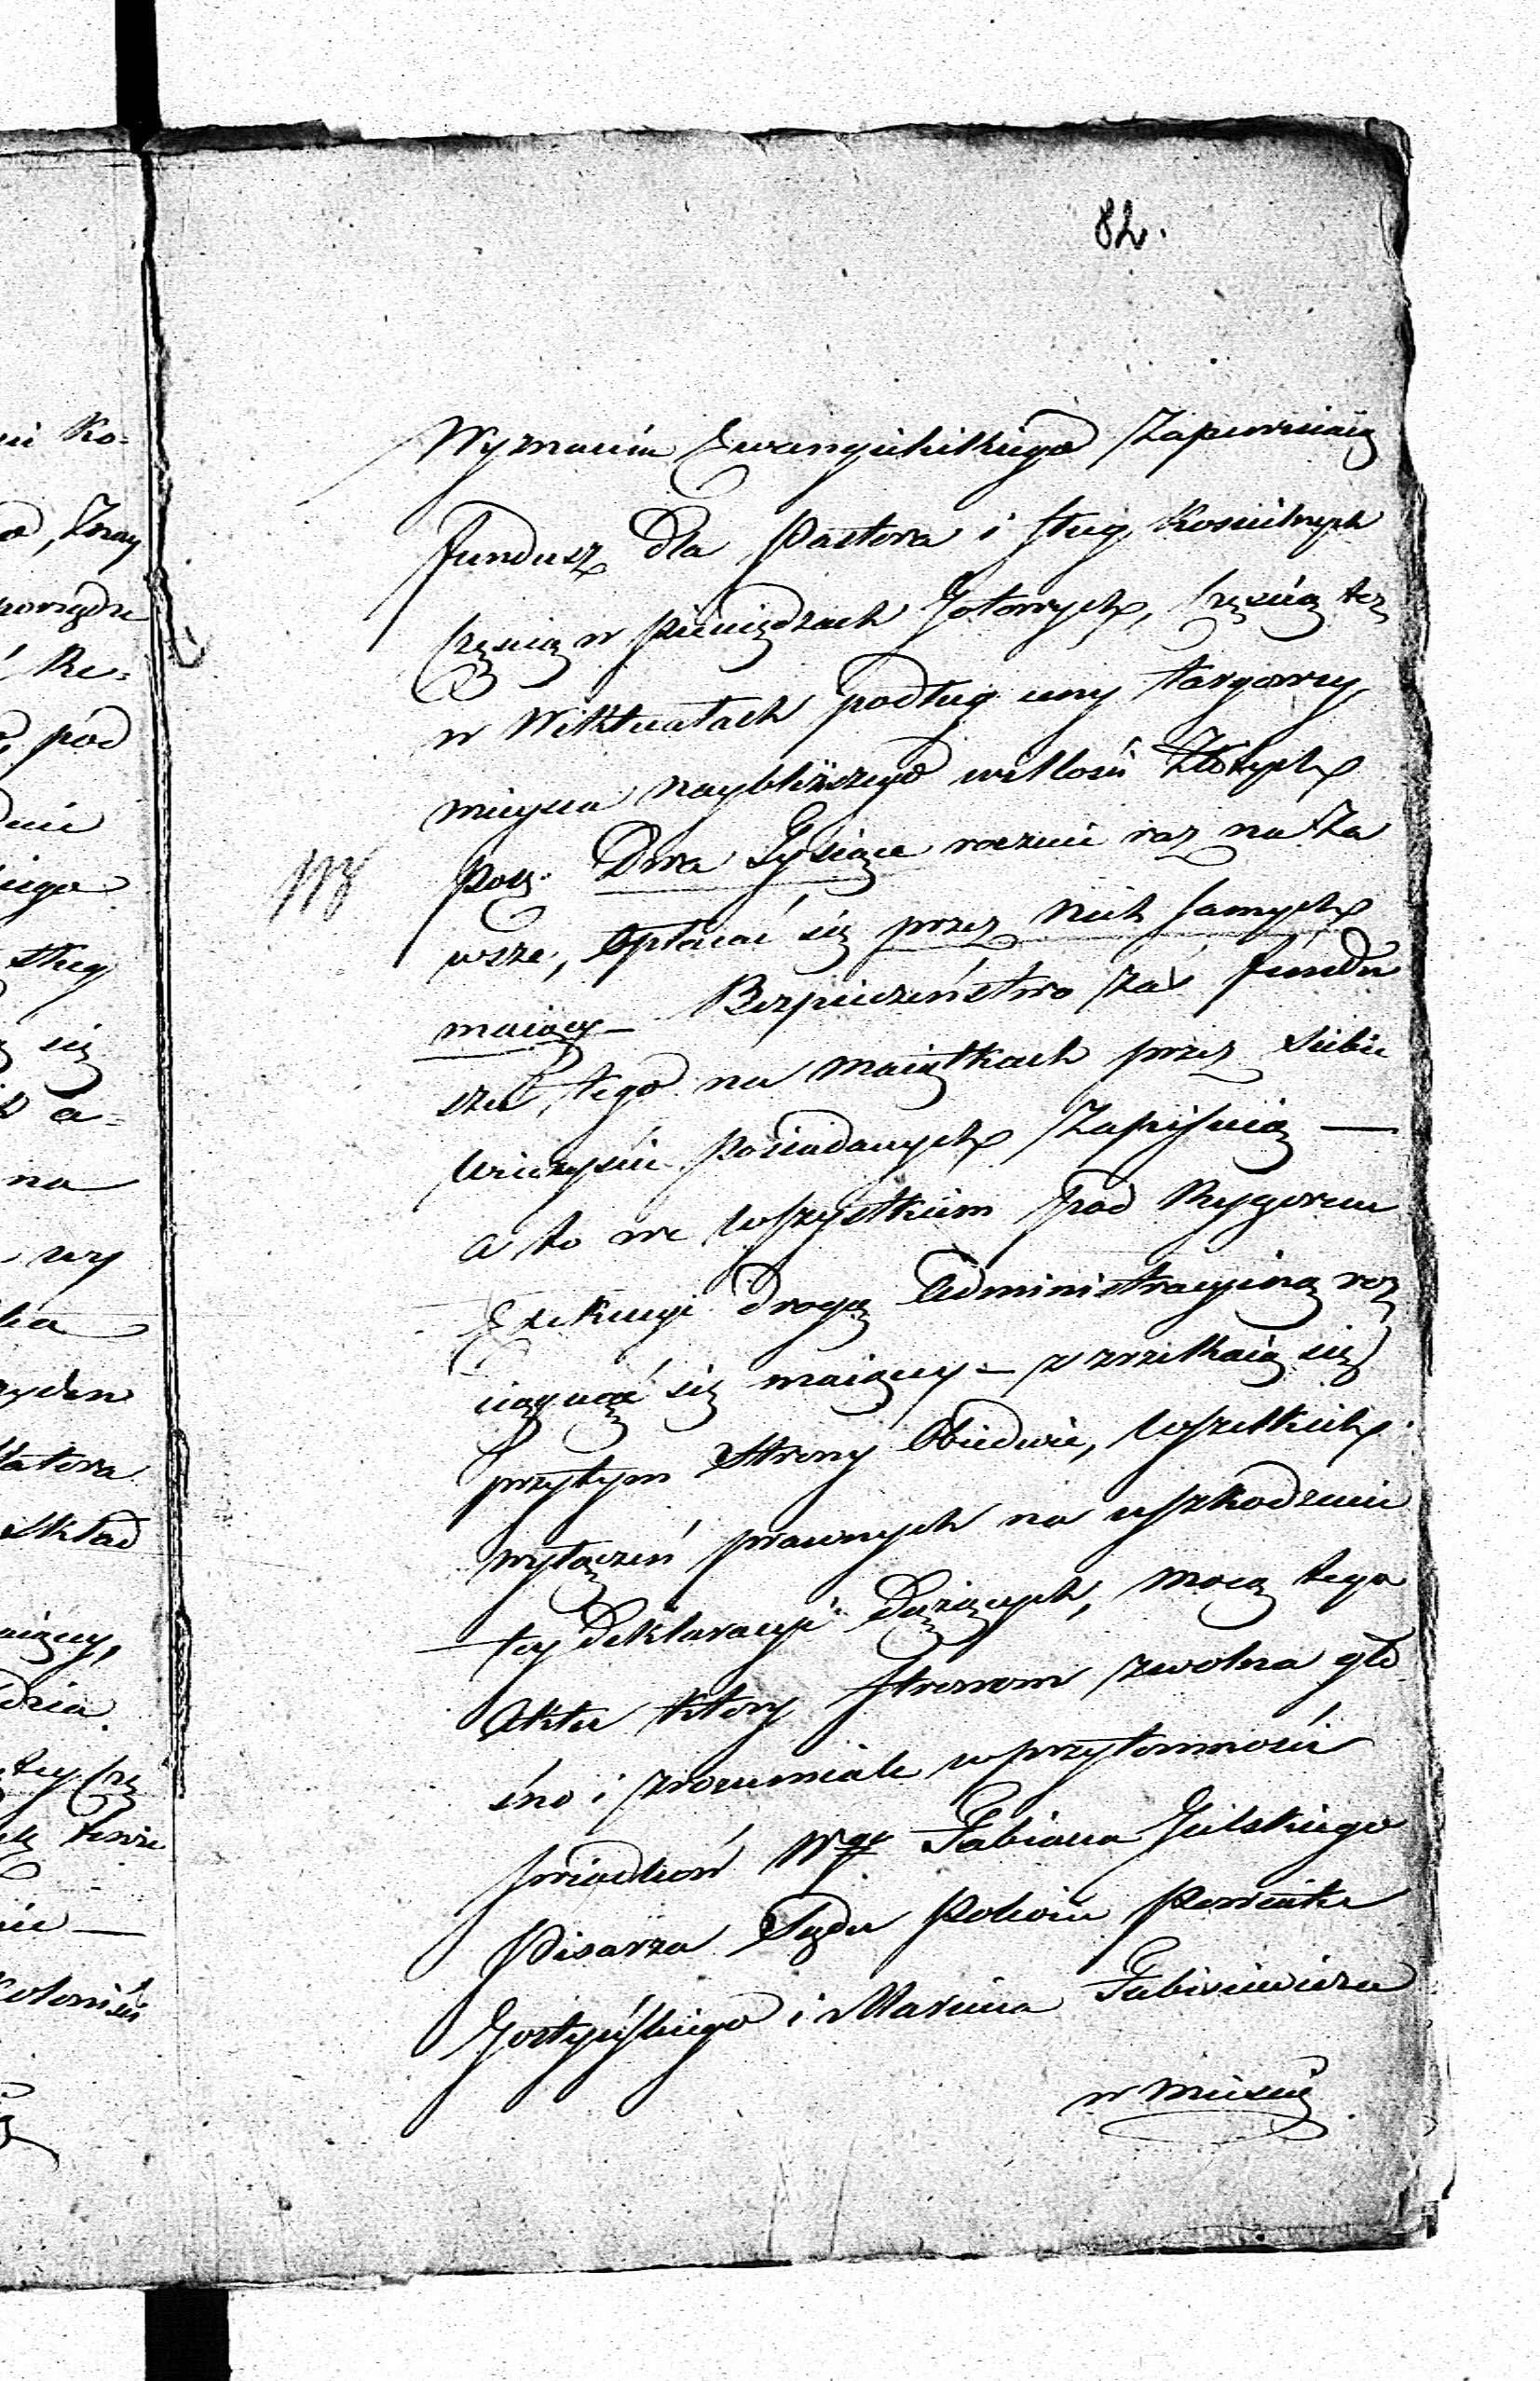 82.
Wyznania Ewangielickiego Zapewniaią
fundusz dla Pastora i sług Kościelnych
częścią w pieniądzach Gotowych, częścią też
w Wiktuałach podług ceny targowey
mieysca naybliższego wielkości Złotych
Pols. Dwa Tysiące rocznie raz na za
wsze, opłacać się przez nich samych
maiący — Bezpieczeństwo zaś fundu
szu tego na maiątkach przez siebie
wieczyście posiadanych zapisuią —
a to we wszystkiem pod Rygorem
Exekucyi drogą Administracyiną roz
ciągnąć się maiącey — zrzekaią się
przytym Strony Obiedwie, wszelkich
wyłączeń prawnych na uszkodzenie
tey Deklaracyi dążących, mocą tego
Aktu który Stronom zwolna gło
śno i zrozumiale w przytomności
świadków Wgo Fabiana Gulskiego
Pisarza Sądu Pokoiu Powiatu
Gostyńskiego i Marcina Fabisiewicza
w mieście
ni Ko-
Re-
pod
iego
sług
się
a-
na
wy
Skład
dzia
tey czę
nie —